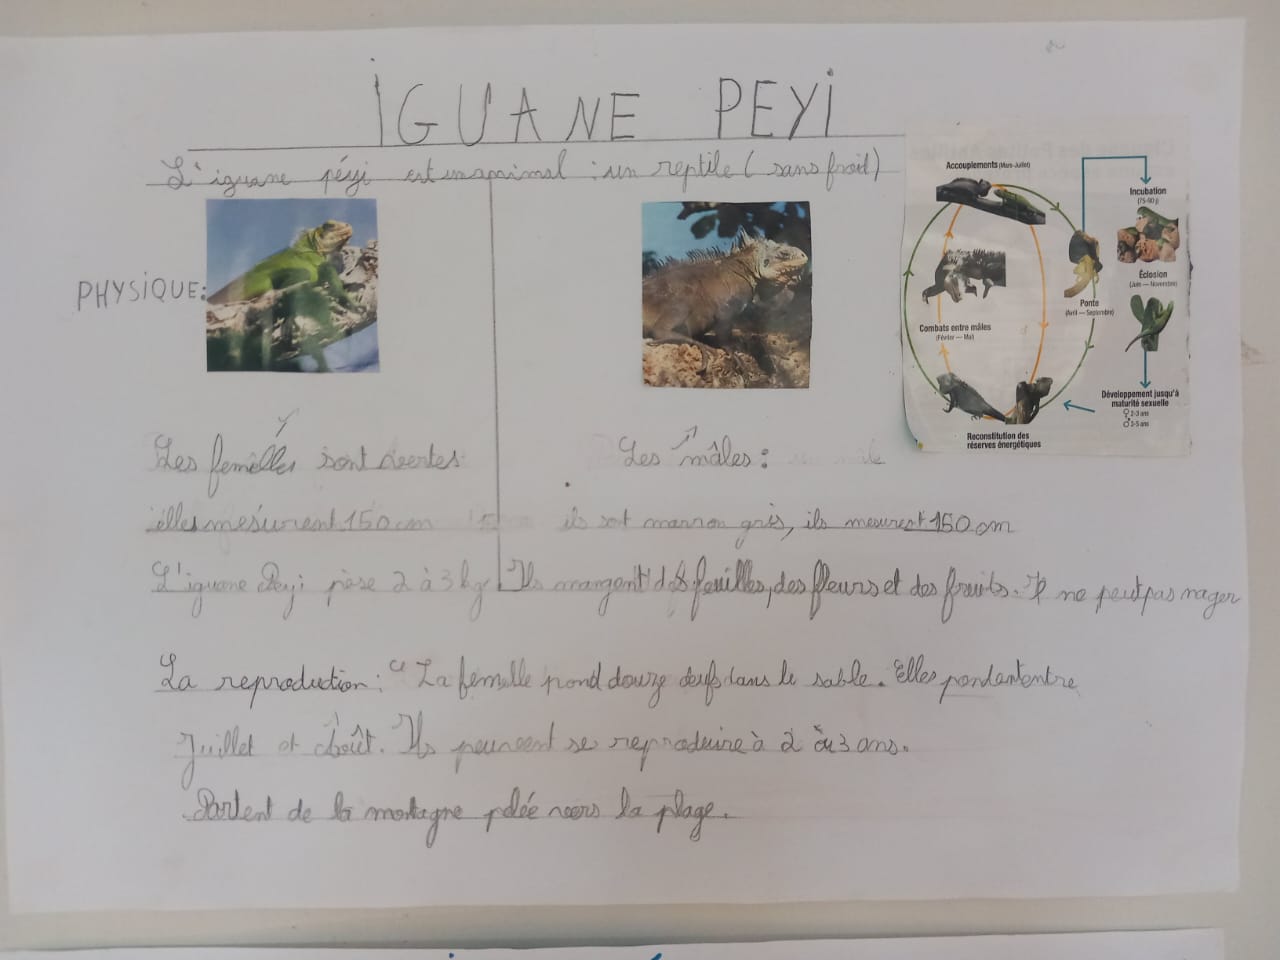 IGUANE PEYI
L'iguane péyi est un animal : un reptile ( sans froid)
PHYSIQUE:
Accouplements (Mars-Juillet)
Incubation
(75-90 j)
Éclosion
(Juin — Novembre)
Ponte
(Avril — Septembre)
Combats entre mâles
(Février — Mai)
Développement jusqu'à
maturité sexuelle
♀ 2-3 ans
♂ 2-5 ans
Reconstitution des
réserves énergétiques
Les femelles sont vertes
elles mesurent 150 cm
Les mâles :
ils sont marron gris, ils mesurent 150 cm
L'iguane Peyi pèse 2 à 3 kg. Ils mangent des feuilles, des fleurs et des fruits. Il ne peut pas nager
La reproduction : " La femelle pond douze œufs dans le sable. Elles pondent entre
Juillet et Août. Ils peuvent se reproduire à 2 à 3 ans.
Partent de la montagne pelée vers la plage.